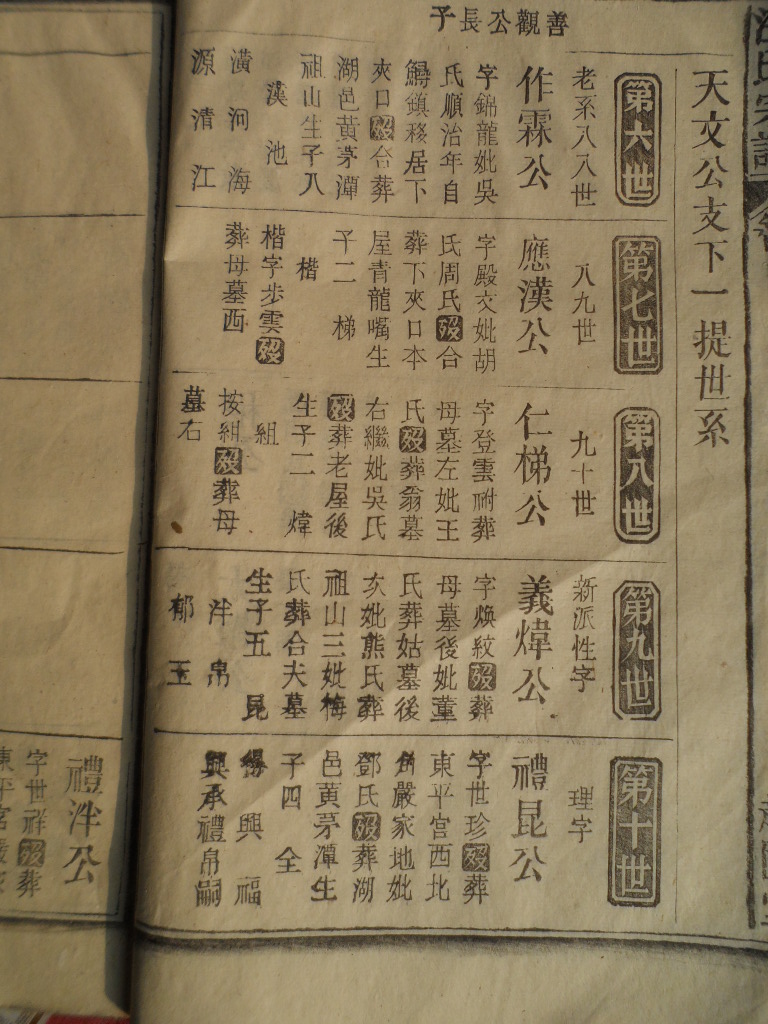 天文公支下一提世系
善觀公長子
第六世
老系八八世
作霖公
字錦龍妣吳
氏順治年自
鱘鎮移居下
夾口歿合葬
湖邑黃茅潭
祖山生子八
漢 池
潢 河 海
源 清 江
第七世
八九世
應漢公
字殿文妣胡
氏周氏歿合
葬下夾口本
屋青龍嘴生
子二 梯
楷
楷字步雲歿
葬母墓西
第八世
九十世
仁梯公
字登雲祔葬
母墓左妣王
氏歿葬翁墓
右繼妣吳氏
歿葬老屋後
生子二 煒
組
按組歿葬母
墓右
第九世
新派性字
義煒公
字煥紋歿葬
母墓後妣董
氏葬姑墓後
亥妣熊氏葬
祖山三妣梅
氏葬合夫墓
生子五 昆
泮 帛
郁 玉
第十世
理字
禮昆公
字世珍歿葬
東平宮西北
角嚴家地妣
鄧氏歿葬湖
邑黃茅潭生
子四 全
得 興 福
興承禮帛嗣
禮泮公
字世祥歿葬
東平宮